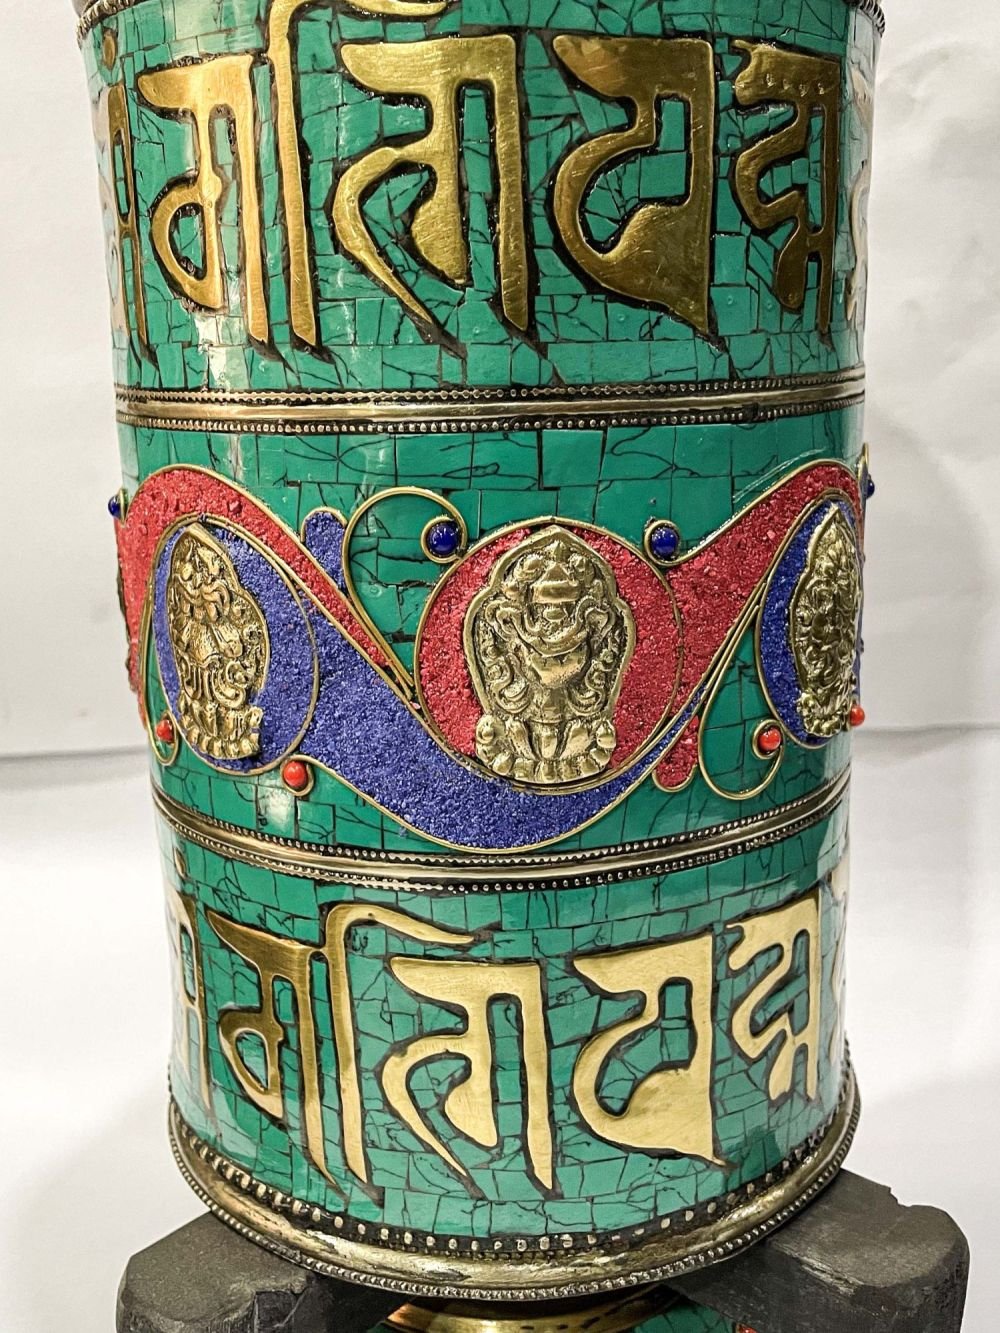 मणिपद्मे
मणिपद्मे